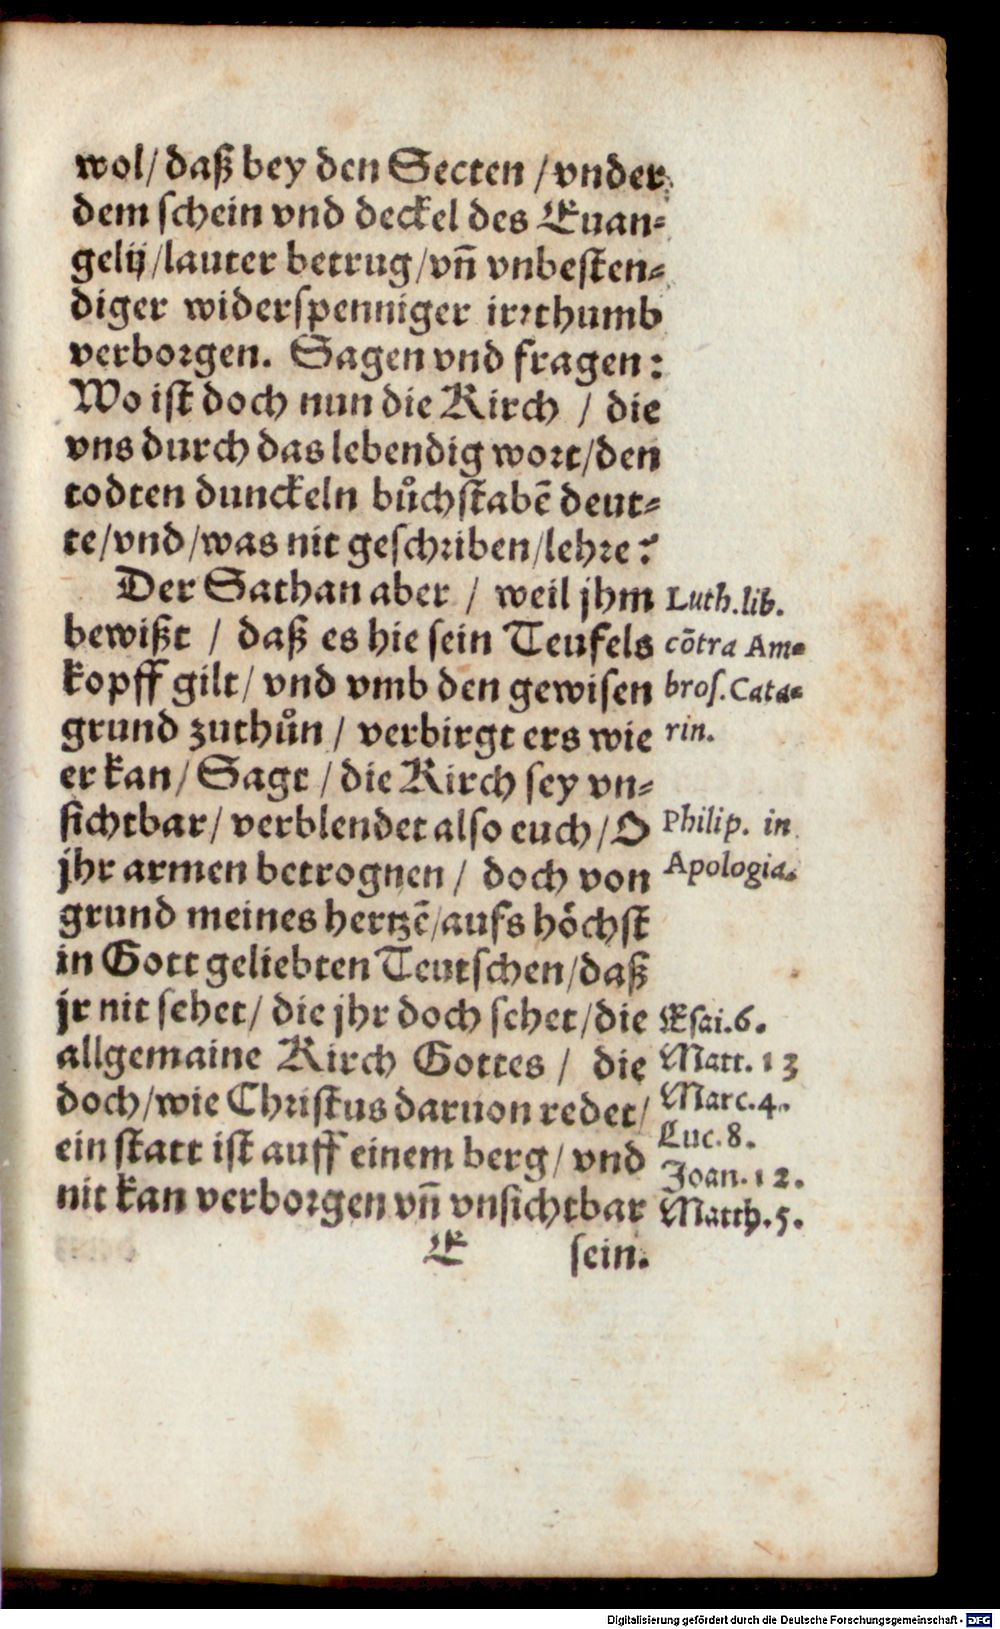 wol/ daß bey den Secten / vnder
dem schein vnd deckel des Euan-
gelij/ lauter betrug/ vñ vnbesten-
diger widerspenniger irrthumb
verborgen. Sagen vnd fragen:
Wo ist doch nun die Kirch / die
vns durch das lebendig wort/ den
todten dunckeln bůchstabẽ deut-
te/ vnd/ was nit geschriben/ lehre?
Der Sathan aber / weil jhm
bewißt / daß es hie sein Teufels
kopff gilt/ vnd vmb den gewisen
grund zuthůn / verbirgt ers wie
er kan/ Sagt / die Kirch sey vn-
sichtbar/ verblendet also euch/ O
jhr armen betrognen / doch von
grund meines hertzẽ/ aufs hôchst
in Gott geliebten Teutschen/ daß
jr nit sehet/ die jhr doch sehet/ die
allgemaine Kirch Gottes / die
doch/ wie Christus daruon redet/
ein statt ist auff einem berg/ vnd
nit kan verborgen vñ vnsichtbar
E sein.
Luth. lib.
cõtra Am-
bros. Cata-
rin.
Philip. in
Apologia.
Esai. 6.
Matt. 13
Marc. 4.
Luc. 8.
Joan. 12.
Matth. 5.
Digitalisierung gefördert durch die Deutsche Forschungsgemeinschaft - DFG